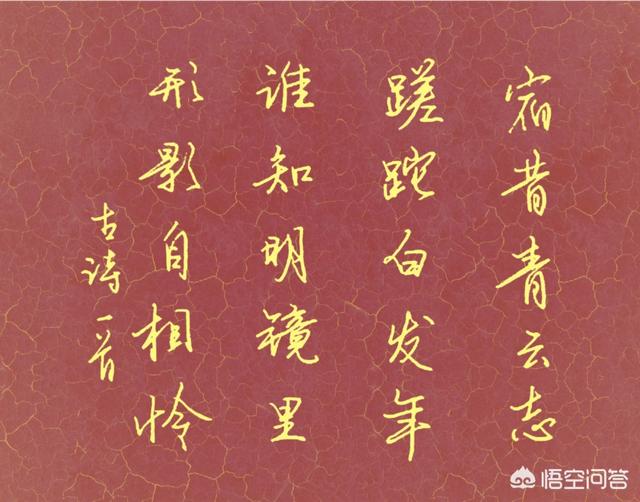 宿昔青云志
蹉跎白发年
谁知明镜里
形影自相怜
古诗一首
悟空问答